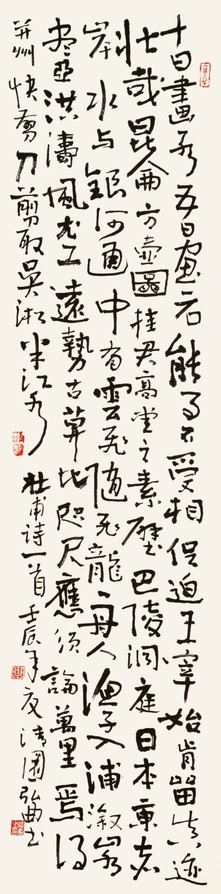 十日畫水五日畫石能事不受相促迫王宰始肯留真迹
壯哉昆侖方壺圖挂君高堂之素壁巴陵洞庭日本東赤
岸水与銀河通中有雲氣随飛龍舟人漁子入浦溆山木
盡亞洪濤風尤工遠勢古莫比咫尺應須論萬里焉得
并州快剪刀剪取吳淞半江水
杜甫诗一首 壬辰年夏清園弘曲书